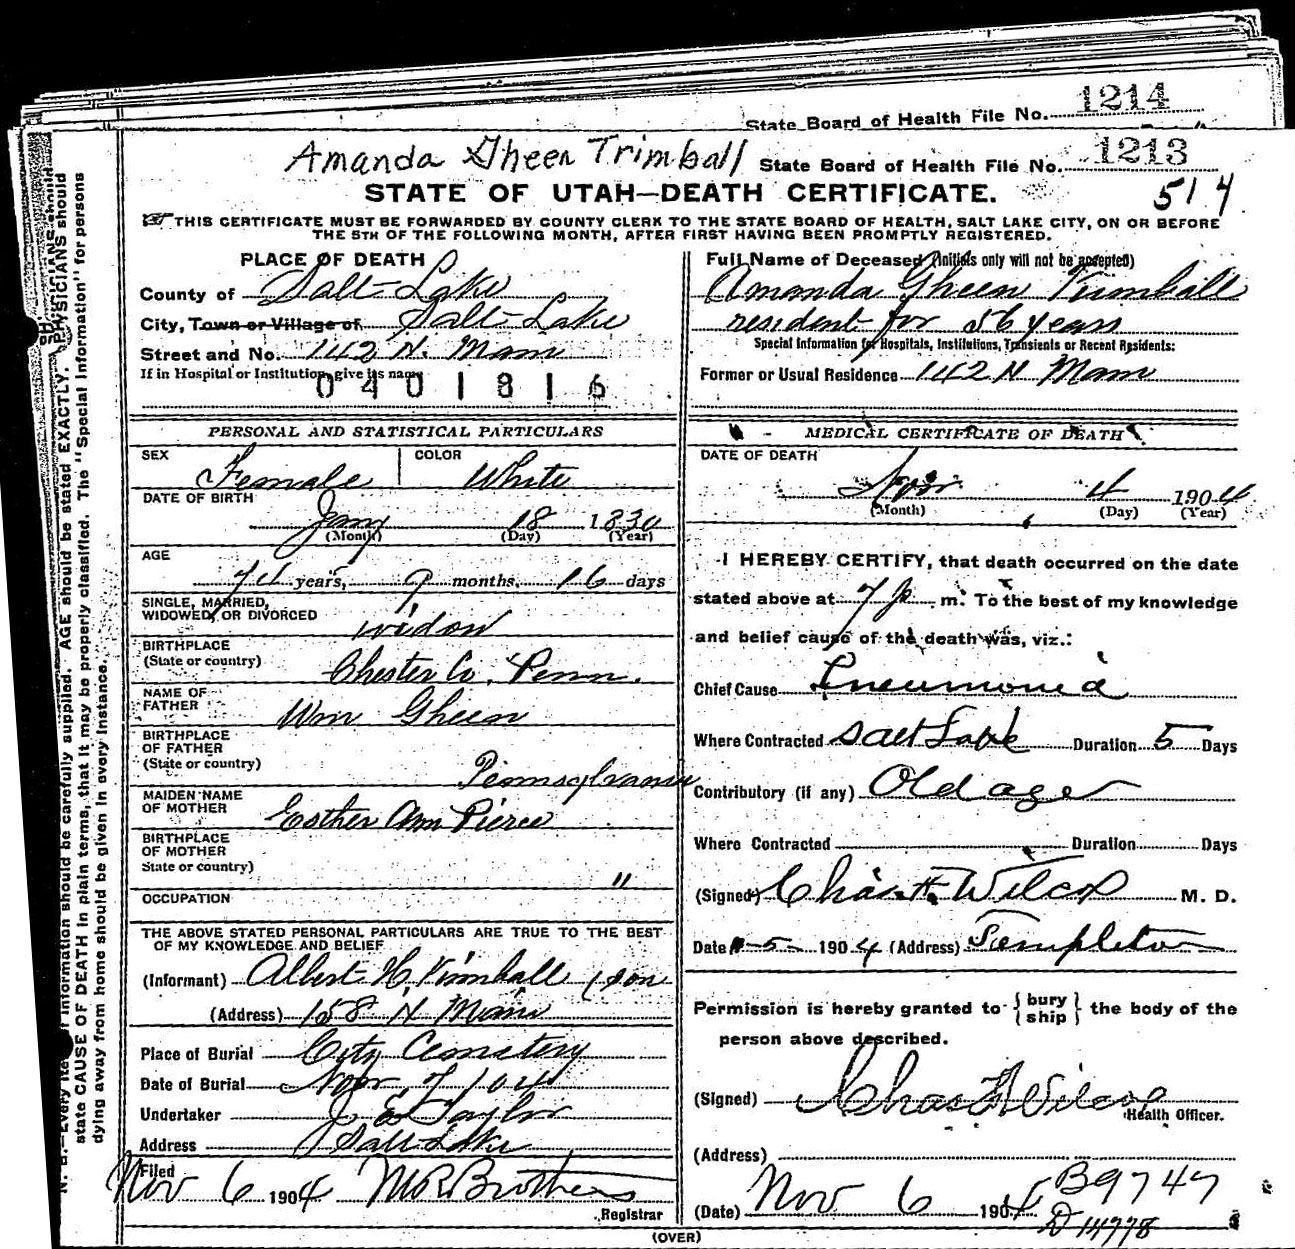 State Board of Health File No. 1214
Amanda Gheen Trimball State Board of Health File No. 1213
514
STATE OF UTAH—DEATH CERTIFICATE.
THIS CERTIFICATE MUST BE FORWARDED BY COUNTY CLERK TO THE STATE BOARD OF HEALTH, SALT LAKE CITY, ON OR BEFORE
THE 5TH OF THE FOLLOWING MONTH, AFTER FIRST HAVING BEEN PROMPTLY REGISTERED.
PLACE OF DEATH
County of Salt Lake
City, Town or Village of Salt Lake
Street and No. 142 N. Main
If in Hospital or Institution, give its name
0401816
Full Name of Deceased (Initials only will not be accepted)
Amanda Gheen Kimball
resident for 56 years
Special Information for Hospitals, Institutions, Transients or Recent Residents:
Former or Usual Residence 142 N Main
PERSONAL AND STATISTICAL PARTICULARS
SEX Female COLOR White
DATE OF BIRTH
Jany 18 1830
(Month) (Day) (Year)
AGE
74 years, 9 months, 16 days
SINGLE, MARRIED,
WIDOWED, OR DIVORCED widow
BIRTHPLACE
(State or country) Chester Co, Penn.
NAME OF
FATHER Wm Gheen
BIRTHPLACE
OF FATHER
(State or country) Pennsylvania
MAIDEN NAME
OF MOTHER Esther Ann Pierce
BIRTHPLACE
OF MOTHER
State or country) "
OCCUPATION
THE ABOVE STATED PERSONAL PARTICULARS ARE TRUE TO THE BEST
OF MY KNOWLEDGE AND BELIEF
(Informant) Albert H Kimball (son
(Address) 158 N Main
Place of Burial City Cemetery
Date of Burial Nobr 7 1904
Undertaker J E Taylor
Address Salt Lake
Filed
Nov 6 1904 M R Brothers
Registrar
MEDICAL CERTIFICATE OF DEATH
DATE OF DEATH
Nov 4 1904
(Month) (Day) (Year)
I HEREBY CERTIFY, that death occurred on the date
stated above at 7 p m. To the best of my knowledge
and belief cause of the death was, viz.:
Chief Cause Pneumonia
Where Contracted Salt Lake Duration 5 Days
Contributory (if any) Old age
Where Contracted Duration Days
(Signed) Chas. F. Wilcox M. D.
Date 11-5- 1904 (Address) Templeton
Permission is hereby granted to {bury
ship} the body of the
person above described.
(Signed) Chas F Wilcox
Health Officer.
(Address)
(Date) Nov 6 1904 B9747
D 14778
(OVER)
N. B.—Every item of information should be carefully supplied. AGE should be stated EXACTLY. PHYSICIANS should
state CAUSE OF DEATH in plain terms, that it may be properly classified. The "Special Information" for persons
dying away from home should be given in every instance.